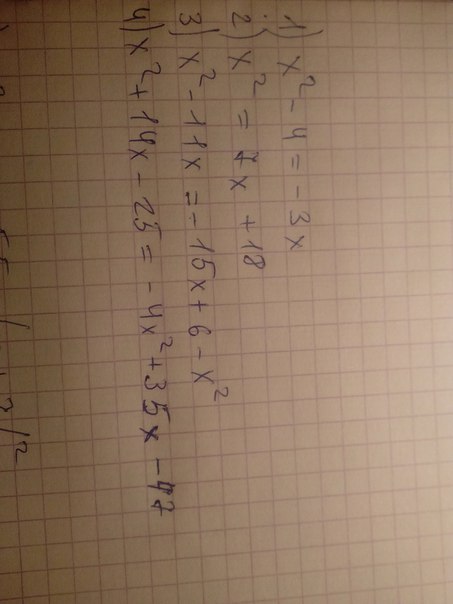 1) x² - 4 = - 3x
2) x² = 7x + 18
3) x² - 11x = - 15x + 6 - x²
4) x² + 14x - 25 = - 4x² + 35x - 47